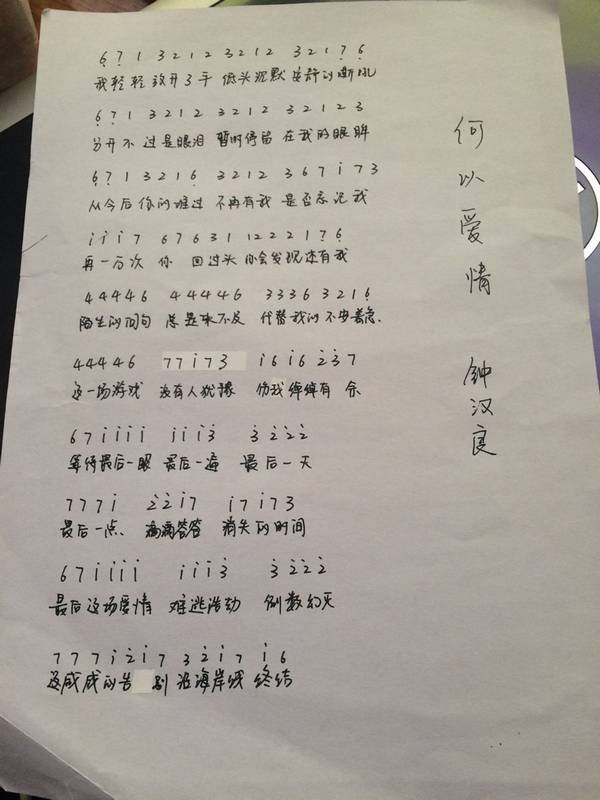 6̣ 7̣ 1 3 2 1 2 3 2 1 2 3 2 1 7̣ 6̣
我轻轻放开了手 低头沉默 安静的嘶吼
6̣ 7̣ 1 3 2 1 2 3 2 1 2 3 2 1 2 3
分开不过是眼泪 暂时停留 在我的眼眸
6̣ 7̣ 1 3 2 1 6̣ 3 2 1 2 3 6 7 i 7 3
从今后你的难过 不再有我 是否忘记我
i i i 7 6 7 6 3 1 1 2 2 2 1 7̣ 6̣
再一百次 你 回过头 你会发现还有我
4 4 4 4 6 4 4 4 4 6 3 3 3 6 3 2 1 6̣
陌生的问句 总是来不及 代替我的不安着急.
4 4 4 4 6 7 7 i 7 3 i 6 i 6 2̇ 3̇ 7
这一场游戏 没有人犹豫 伤我绰绰有 余
6 7 i i i i i i i 3̇ 3̇ 2̇ 2̇ 2̇
等待最后一眼 最后一遍 最后一天
7 7 7 i 2̇ 2̇ i 7 i 7 i 7 3
最后一点 滴滴答答 消失的时间
6 7 i i i i i i i 3̇ 3̇ 2̇ 2̇ 2̇
最后这场爱情 难逃浩劫 倒数幻灭
7 7 7 i 2̇ i 7 3 2̇ i 7 i 6
这咸咸的告 别 沿海岸线 终结
何以爱情 钟汉良